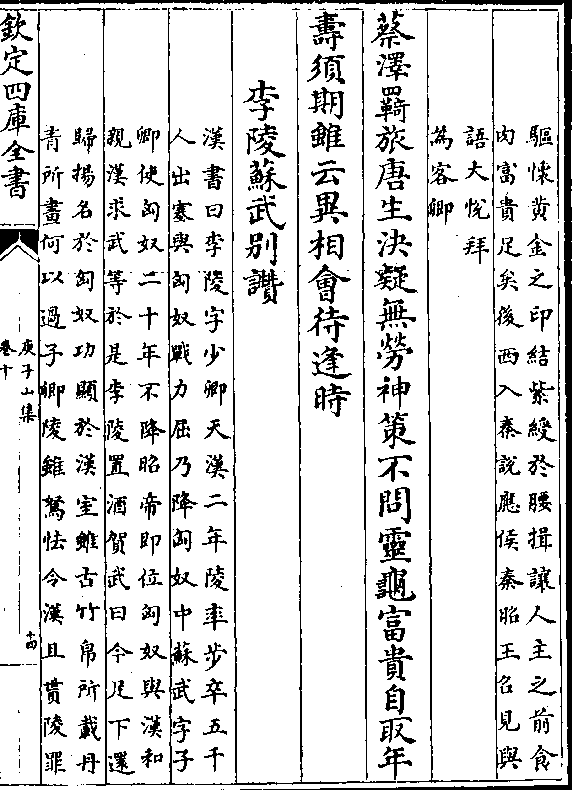 驅懷黄金之印結紫綬於腰揖讓人主之前食
肉富貴足矣後西入秦說應侯秦昭王召見與
語大悅拜
為客卿
蔡澤羇旅唐生決疑無勞神策不問靈龜富貴自取年
壽須期雖云異相會待逢時
李陵蘇武别讚
漢書曰李陵字少卿天漢二年陵率步卒五千
人出塞與匈奴戰力屈乃降匈奴中蘇武字子
卿使匈奴二十年不降昭帝即位匈奴與漢和
親漢求武等於是李陵置酒賀武曰今足下還
歸揚名於匈奴功顯於漢室雖古竹帛所載丹
青所畫何以過子卿陵雖駑怯令漢且貰陵罪
欽定四庫全書
庾子山集
卷十
十四